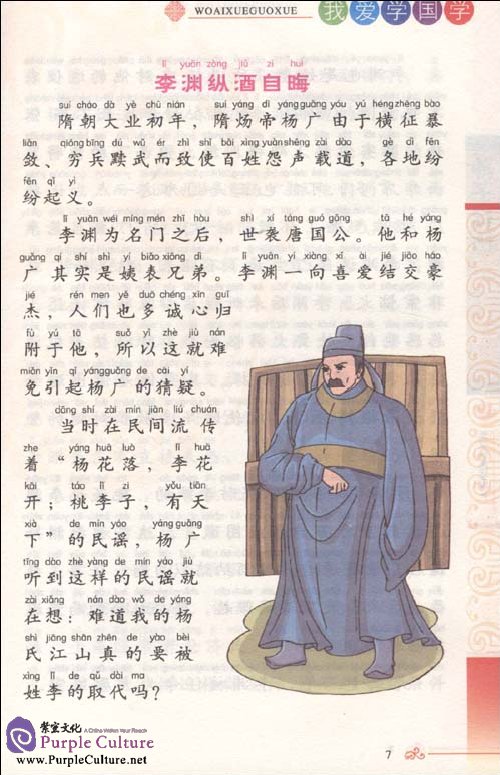 WOAIXUEGUOXUE
我爱学国学
lǐ yuān zòng jiǔ zì huì
李渊纵酒自晦
suí cháo dà yè chū nián suí yáng dì yáng guǎng yóu yú héng zhēng bào
隋朝大业初年，隋炀帝杨广由于横征暴
liǎn qióng bīng dú wǔ ér zhì shǐ bǎi xìng yuàn shēng zài dào gè dì fēn
敛、穷兵黩武而致使百姓怨声载道，各地纷
fēn qǐ yì
纷起义。
lǐ yuān wéi míng mén zhī hòu shì xí táng guó gōng tā hé yáng
李渊为名门之后，世袭唐国公。他和杨
guǎng qí shí shì yí biǎo xiōng dì lǐ yuān yí xiàng xǐ ài jié jiāo háo
广其实是姨表兄弟。李渊一向喜爱结交豪
jié rén men yě duō chéng xīn guī
杰，人们也多诚心归
fù yú tā suǒ yǐ zhè jiù nán
附于他，所以这就难
miǎn yǐn qǐ yáng guǎng de cāi yí
免引起杨广的猜疑。
dāng shí zài mín jiān liú chuán
当时在民间流传
zhe yáng huā luò lǐ huā
着“杨花落，李花
kāi táo lǐ zi yǒu tiān
开；桃李子，有天
xià de mín yáo yáng guǎng
下”的民谣，杨广
tīng dào zhè yàng de mín yáo jiù
听到这样的民谣就
zài xiǎng nán dào wǒ de yáng
在想：难道我的杨
shì jiāng shān zhēn de yào bèi
氏江山真的要被
xìng lǐ de qǔ dài ma
姓李的取代吗？
紫宣文化 A China Within Your Reach
Purple Culture
www.PurpleCulture.net
7